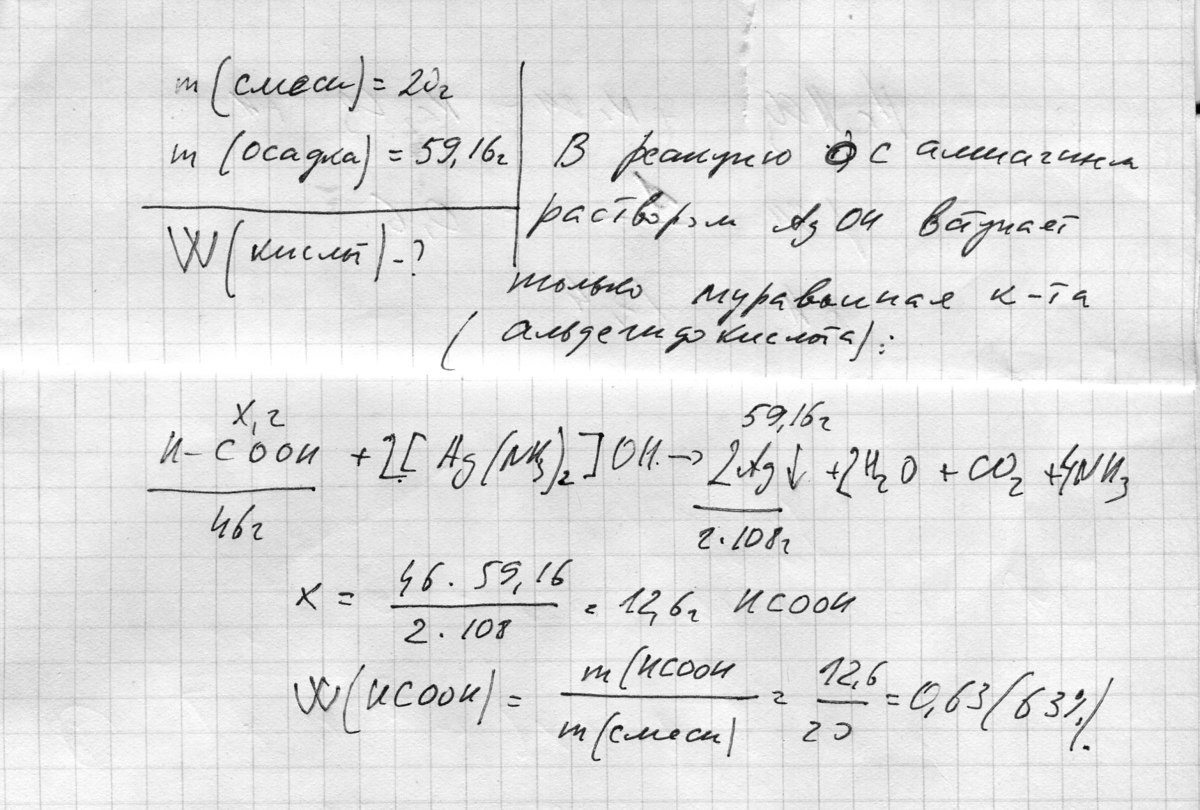 m (смеси) = 20г
m (осадка) = 59,16г
W (кислот) - ?
В реакцию с аммиачным
раствором AgOH вступает
только муравьиная к-та
(альдегидокислота):
x, г 59,16г
H-COOH + 2[Ag(NH3)2]OH → 2Ag↓ + 2H2O + CO2 + 4NH3
46г 2·108г
x = 46 · 59,16 / 2 · 108 = 12,6г HCOOH
W(HCOOH) = m(HCOOH / m(смеси) = 12,6 / 20 = 0,63 (63%).